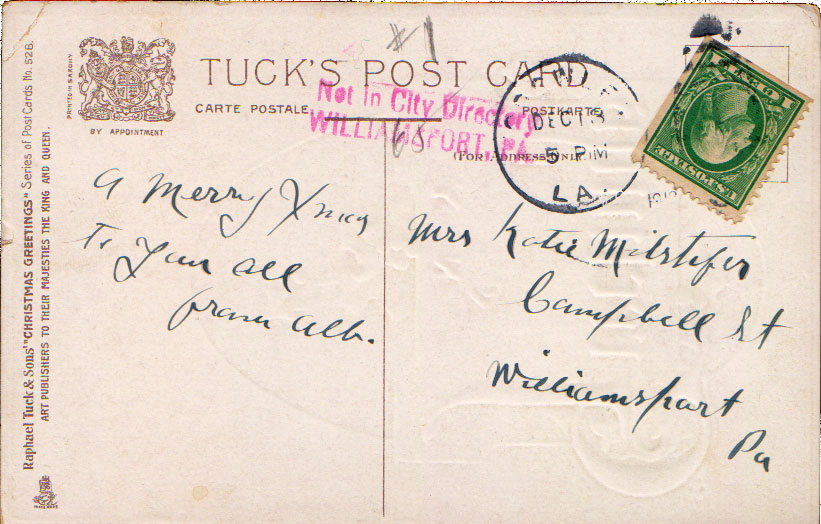 #1
TUCK'S POST CARD
CARTE POSTALE
POSTKARTE
(FOR ADDRESS ONLY.)
PRINTED IN SAXONY
BY APPOINTMENT
Not in City Directory
WILLIAMSPORT, PA.
DEC 13
5 PM
LA.
1 CENT 1
U.S. POSTAGE
A Merry Xmas
To You all
from Alb.
Mrs Katie Milstifer
Campbell St
Williamsport
Pa
Raphael Tuck & Sons' "CHRISTMAS GREETINGS" Series of Post Cards No. 528.
ART PUBLISHERS TO THEIR MAJESTIES THE KING AND QUEEN.